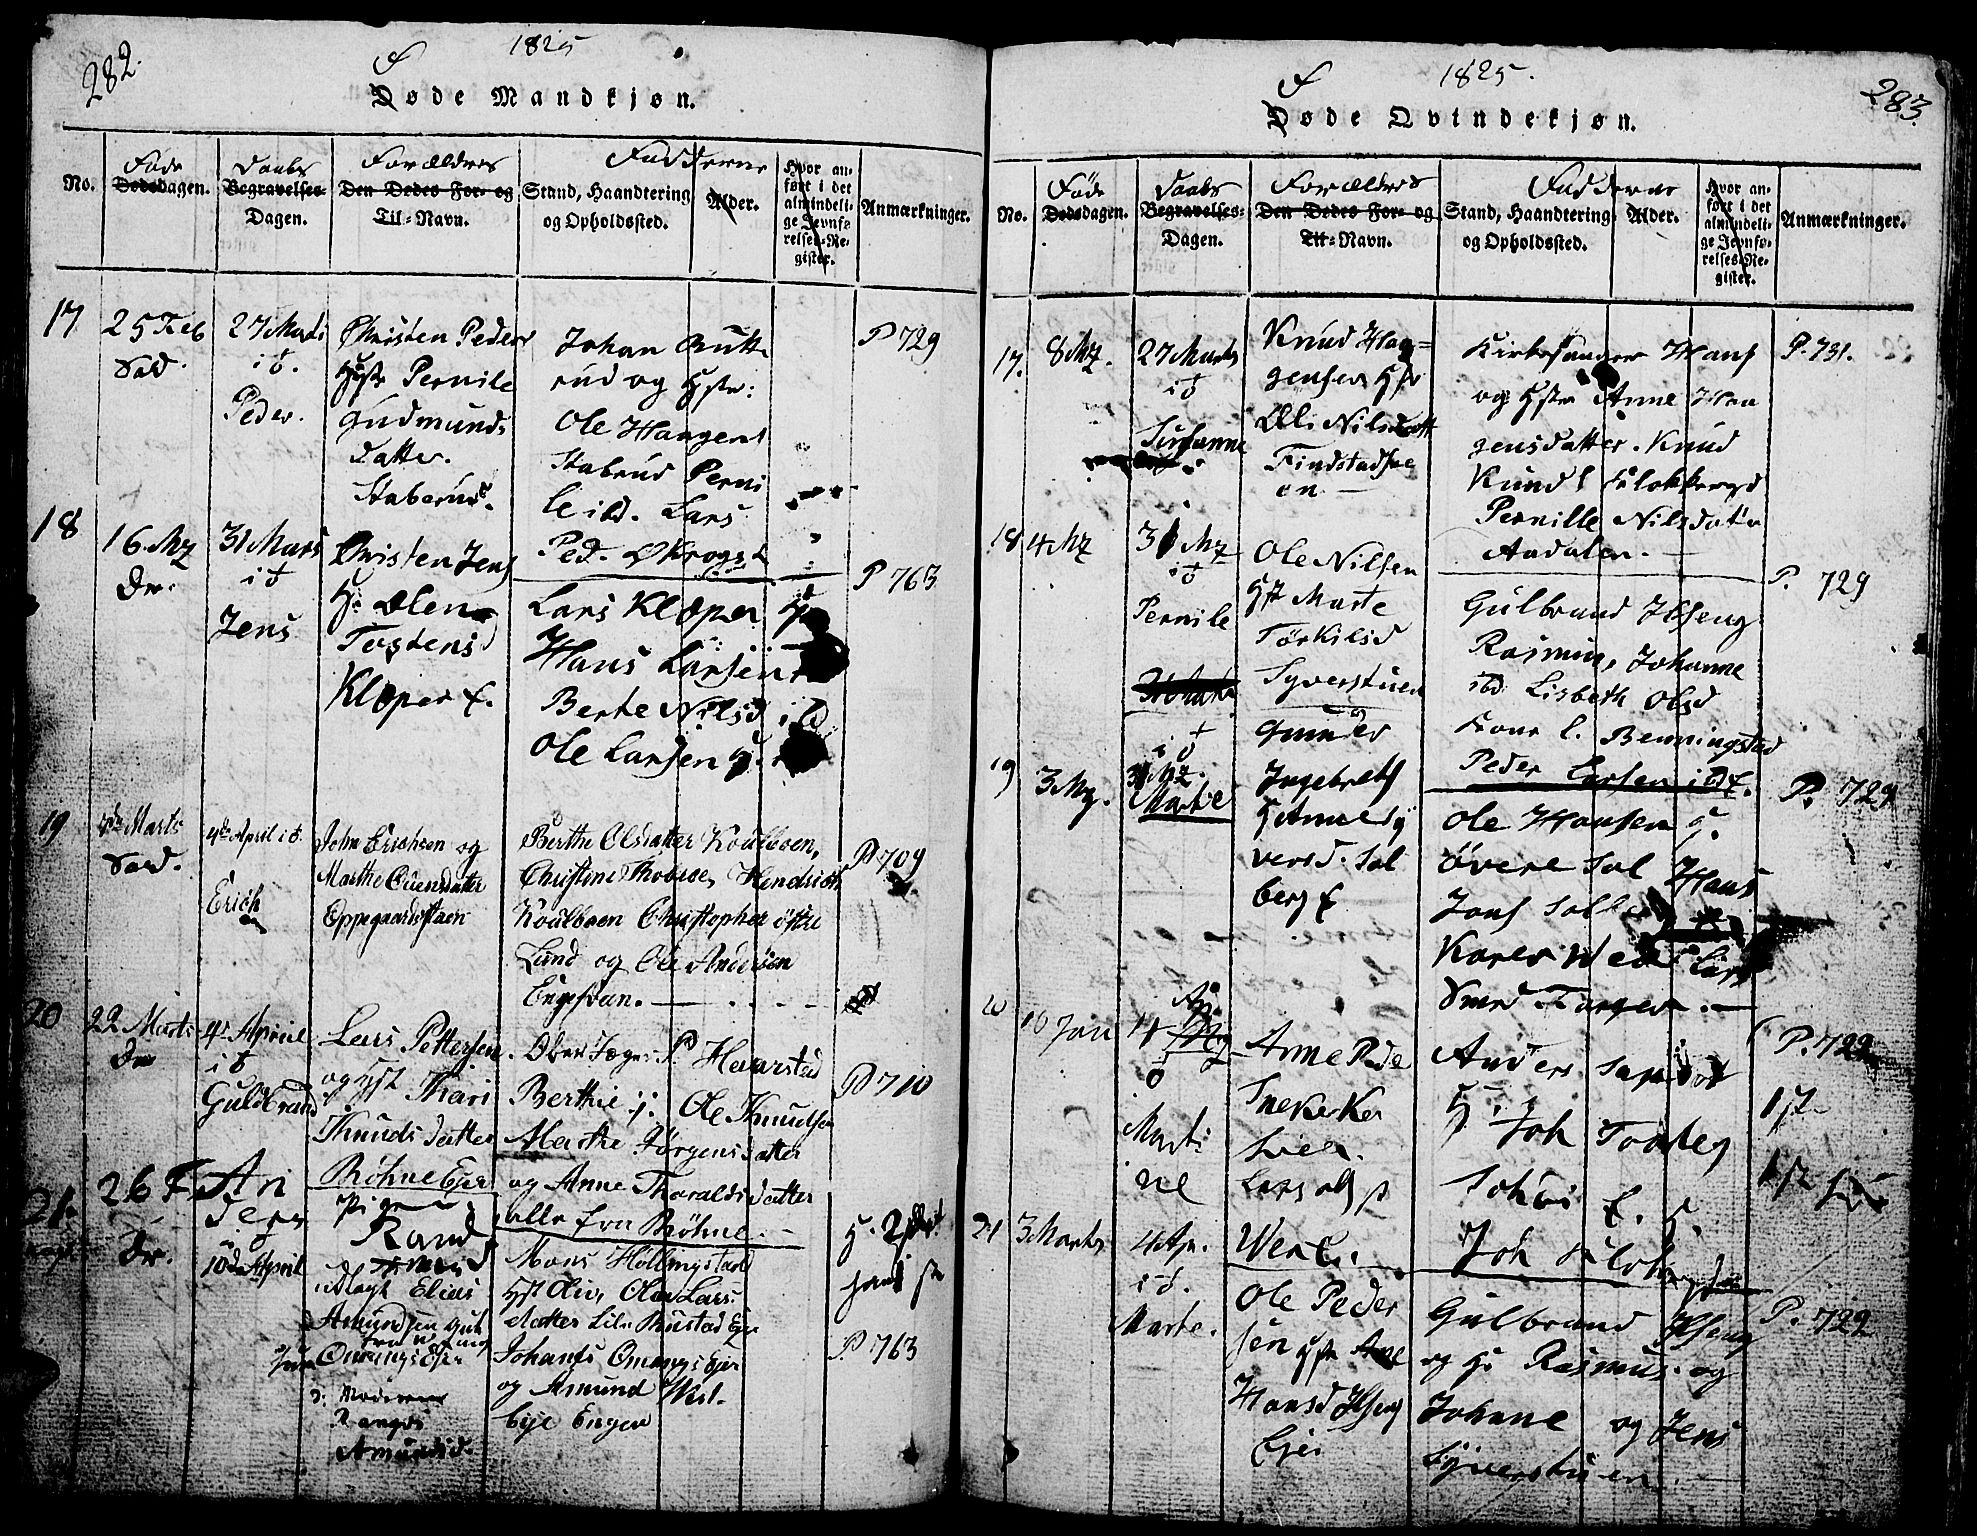 282.
1825
Døde Mandkjøn.
No.
Føde
Dødsdagen.
Daabs
Begravelses-
Dagen.
Forældres
Den Dødes For- og
Til-Navn.
Fadderne
Stand, Haandtering
og Opholdssted.
Alder.
Hvor an-
ført i det
almindeli-
ge Jevnfø-
relses-Re-
gister.
Anmærkninger.
17
25 Feb
27 Marts
i d.
Peder.
Christen Peders
Hstr Pernile
Gudmunds
datter.
Staberud.
Johan Gutte
rud og Hstr:
Ole Haagens
Stabrud Perni
le ibd. Lars
Ped. Økrogst
P 729
18
16 Mz
Dr.
31 Mars
i d
Jens
Christen Jens
H: Olen
Tostens
Kloper f.
Lars Kloper H
Hans Larsen
Berte Nilsd ibd
Ole Larsen
P 763
19
Marts
4de April i d.
Erich
John Erichsen og
Marthe Evensdatter
Oppegaardsstuen
Berthe Olsdatter Koulboen,
Christine Hendrich
Koulboen Christopher østre
Lund og Ole Andersen
Engesvan.
P 709
20
22 Marts
Dr
4de Aprile
i d
Guldbrand
Lars Pettersen
og Hst Thari
Knuds datter
Böhne Ejer
P. Haarstad
Berthe ij. Ole Knudsen
Marthe Jörgensdatter
og Anne Tharaldsdatter
alle fra Böhne.
P 710
21.
26 F
Dr.
An
ders
10de April
Pige
Rand
Amund
udlagt Elias
Amundsen
Omangs Ejer
Moderen
Rangdi
Amundsd.
Mons Hollmgstad
Hst Oliv, Olea Lars
datter Lile Rustad Eje
Johanes Omangs Ejer
og Amund West
Eje Engen
P 763
283.
1825.
Døde Qvindekjøn.
No.
Føde
Dødsdagen.
Daabs
Begravelses-
Dagen.
Forældres
Den Dødes For- og
Til-Navn.
Fadderne
Stand, Haandtering
og Opholdssted.
Alder.
Hvor an-
ført i det
almindeli-
ge Jevnfø-
relses-Re-
gister.
Anmærkninger.
17.
8 Mz.
27 Marts
i d
Susanne
Knud Haa=
gensen Hstr
Oli Nilsdatt
Findstadsve
en.
Kirkesanger Hans
og Hstr Anne Haa
gensdatter. Knud
Knuds Klokkergd
Pernille Nilsdatr
Aadalen.
P. 731.
18
4 Mz
31 Mz
i d
Pernile
Ole Nilsen
Hst Marte
Törkilsd
Syverstuen
Gulbrand Ilseng
Rasmus, Johanne
ibd Lisbeth Olsd
Kone l. Benningstad
Peder Larsen ibd f.
P. 729
19
3 Mz.
i d
31 Mz.
Marte
Gunder
Ingebreths
H Anne Sy
versd. Sol
berg f.
Ole Hansen H.
Övere Sol Hans
Jons Sol
Karen
P. 729
20
10 Jan
4 Ap
Marti
ne
Anne Pede
Snekerke
Lars
Anders
H.
Joh
P. 722
21
3 Marts
4 Ap.
i d.
Marte.
Ole Peder
sen Hstr Ane
Hansd Ilseng
Ejer
Gulbrand Ilseng
og H: Rasmus og
Johane og Jens
Syverstuen.
P. 722